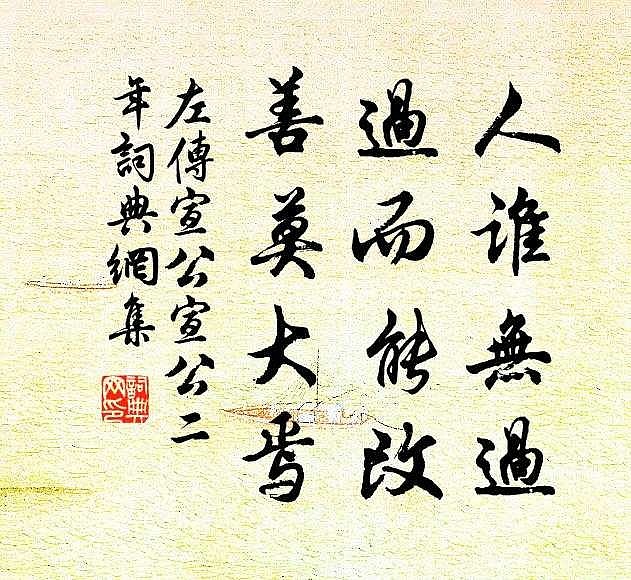 人誰無過
過而能改
善莫大焉
左傳宣公宣公二
年詞典網集
詞典
网印